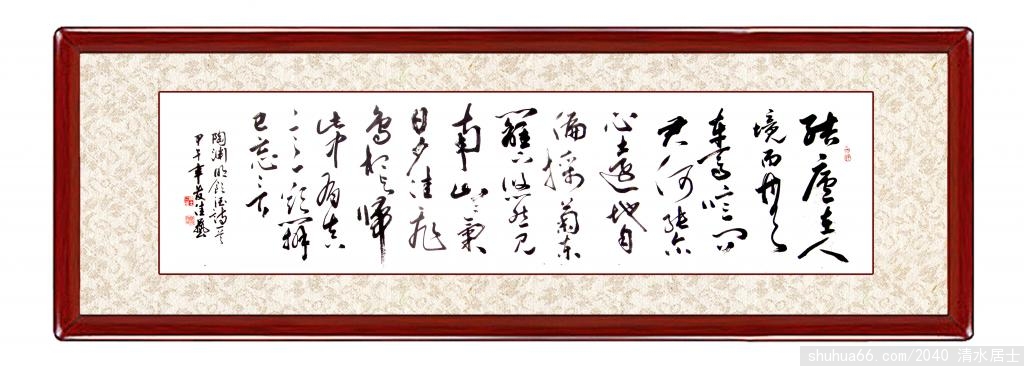 結廬在人
境而無
車馬喧問
君何能尔
心遠地自
偏採菊東
籬下悠然見
南山山氣
日夕佳飛
鳥相與歸
此中有真
意欲辨
已忘言
陶淵明飲酒詩
甲午年
shuhua66.com/2040 清水居士